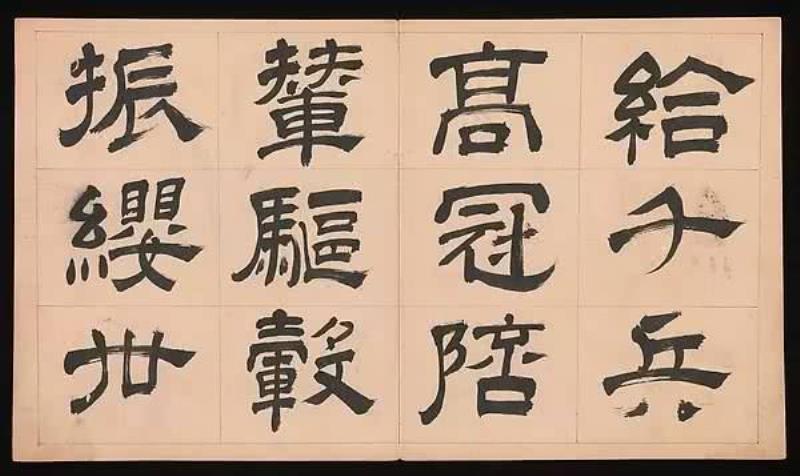 給千兵
髙冠陪
輦驅轂
振纓卋